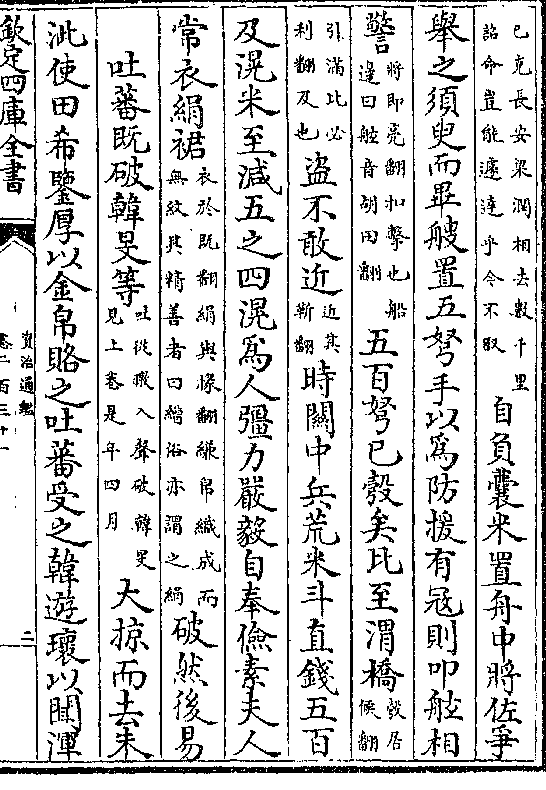 已克長安梁潤相去數千里詔命豈能遽達乎今不取自負囊米置舟中將佐爭
舉之須臾而畢艘置五弩手以爲防援有寇則叩舷相
警將即亮翻扣擊也船邊曰舷音胡田翻五百弩已彀矣比至渭橋彀居候翻
引滿比必利翻及也盜不敢近近其靳翻時關中兵荒米斗直錢五百
及滉米至減五之四滉爲人彊力嚴毅自奉儉素夫人
常衣絹裙衣於既翻絹與掾翻縑帛織成而無紋其精善者曰繒俗亦謂之絹破然後易
吐蕃既破韓旻等吐從暾入聲破韓旻見上卷是年四月大掠而去朱
泚使田希鑒厚以金帛賂之吐蕃受之韓遊瓌以聞渾
欽定四庫全書
資治通鑑
卷二百三十一
二